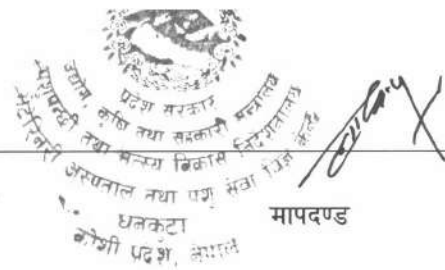 प्रदेश सरकार
उद्योग, कृषि तथा सहकारी मन्त्रालय
पशुपन्छी तथा मत्स्य विकास निर्देशनालय
भेटेरिनरी अस्पताल तथा पशु सेवा विज्ञ केन्द्र
धनकुटा
कोशी प्रदेश, नेपाल
मापदण्ड